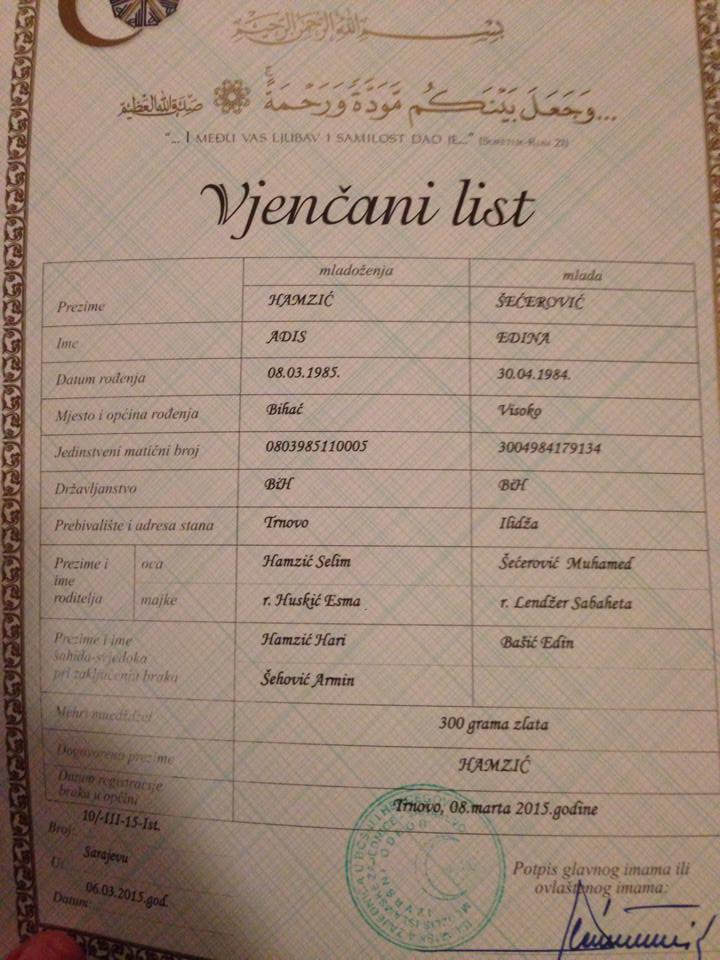 بسم الله الرحمن الرحيم
...وَجَعَلَ بَيْنَكُم مَّوَدَّةً وَرَحْمَةً صدق الله العظيم
"... I MEĐU VAS LJUBAV I SAMILOST DAO JE..."
Vjenčani list
mladoženja mlada
Prezime HAMZIĆ ŠEĆEROVIĆ
Ime ADIS EDINA
Datum rođenja 08.03.1985. 30.04.1984.
Mjesto i općina rođenja Bihać Visoko
Jedinstveni matični broj 0803985110005 3004984179134
Državljanstvo BiH BiH
Prebivalište i adresa stana Trnovo Ilidža
Prezime i ime roditelja oca Hamzić Selim Šećerović Muhamed
majke r. Huskić Esma r. Lendžer Sabaheta
Prezime i ime Hamzić Hari Bašić Edin
šahida-svjedoka
pri zaključenju braka Šehović Armin
Mehri muedždžel 300 grama zlata
Dogovoreno prezime HAMZIĆ
Datum registracije
braka u općini Trnovo, 08.marta 2015.godine
Broj: 10/-III-15-Ist.
U: Sarajevu
Datum: 06.03.2015.god.
Potpis glavnog imama ili
ovlaštenog imama: